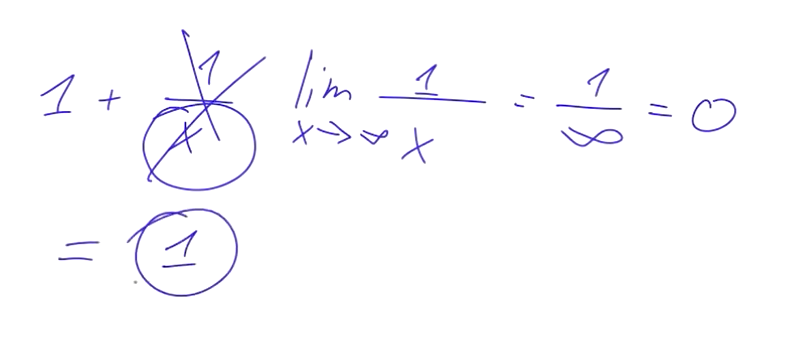 1 + 1/x lim x→∞ 1/x = 1/∞ = 0
= 1